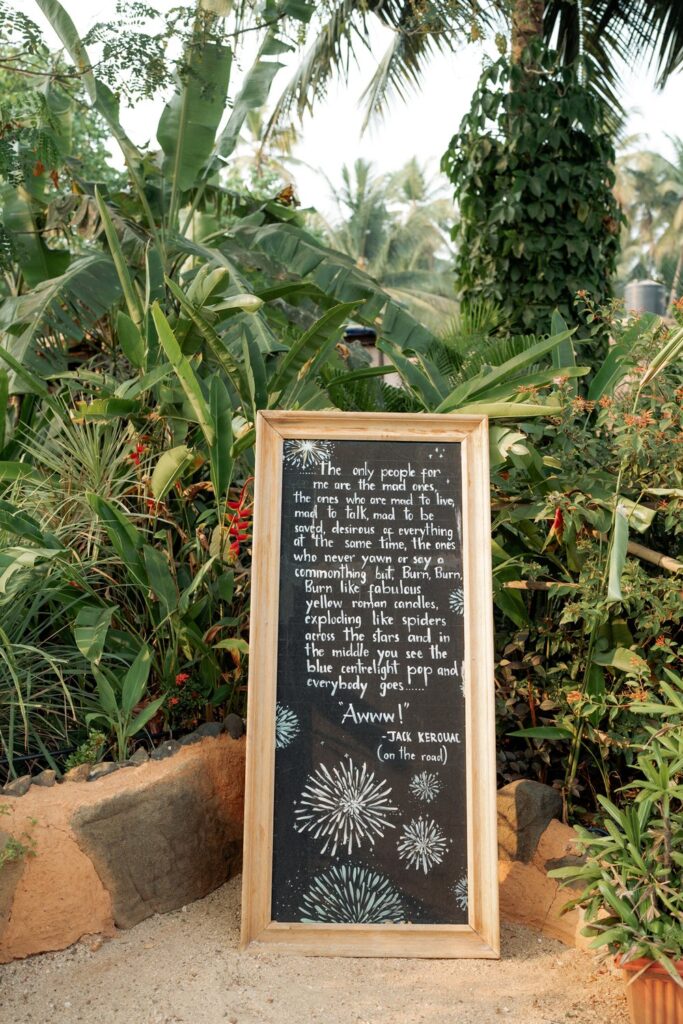 .....The only people for
me are the mad ones,
the ones who are mad to live,
mad to talk, mad to be
saved, desirous of everything
at the same time, the ones
who never yawn or say a
commonthing but, Burn, Burn,
Burn like fabulous
yellow roman candles,
exploding like spiders
across the stars and in
the middle you see the
blue centrelight pop and
everybody goes......
"Awww!"
-JACK KEROUAC
(on the road)